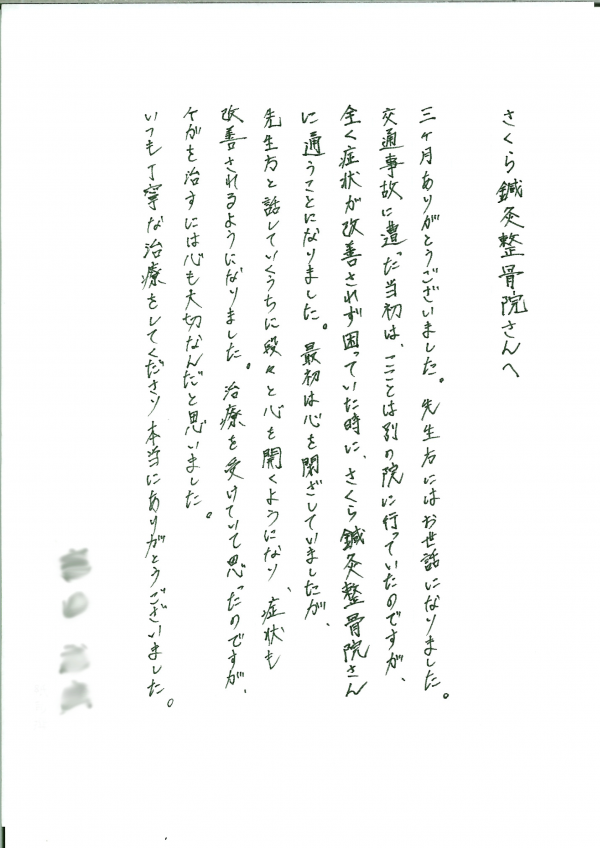 さくら鍼灸整骨院さんへ
三ヶ月ありがとうございました。先生方にはお世話になりました。
交通事故に遭った当初は、こことは別の院に行っていたのですが、
全く症状が改善されず困っていた時に、さくら鍼灸整骨院さん
に通うことになりました。最初は心を閉ざしていましたが、
先生方と話していくうちに段々と心を開くようになり、症状も
改善されるようになりました。治療を受けていて思ったのですが、
ケガを治すには心も大切なんだと思いました。
いつも丁寧な治療をしてくださり本当にありがとうございました。